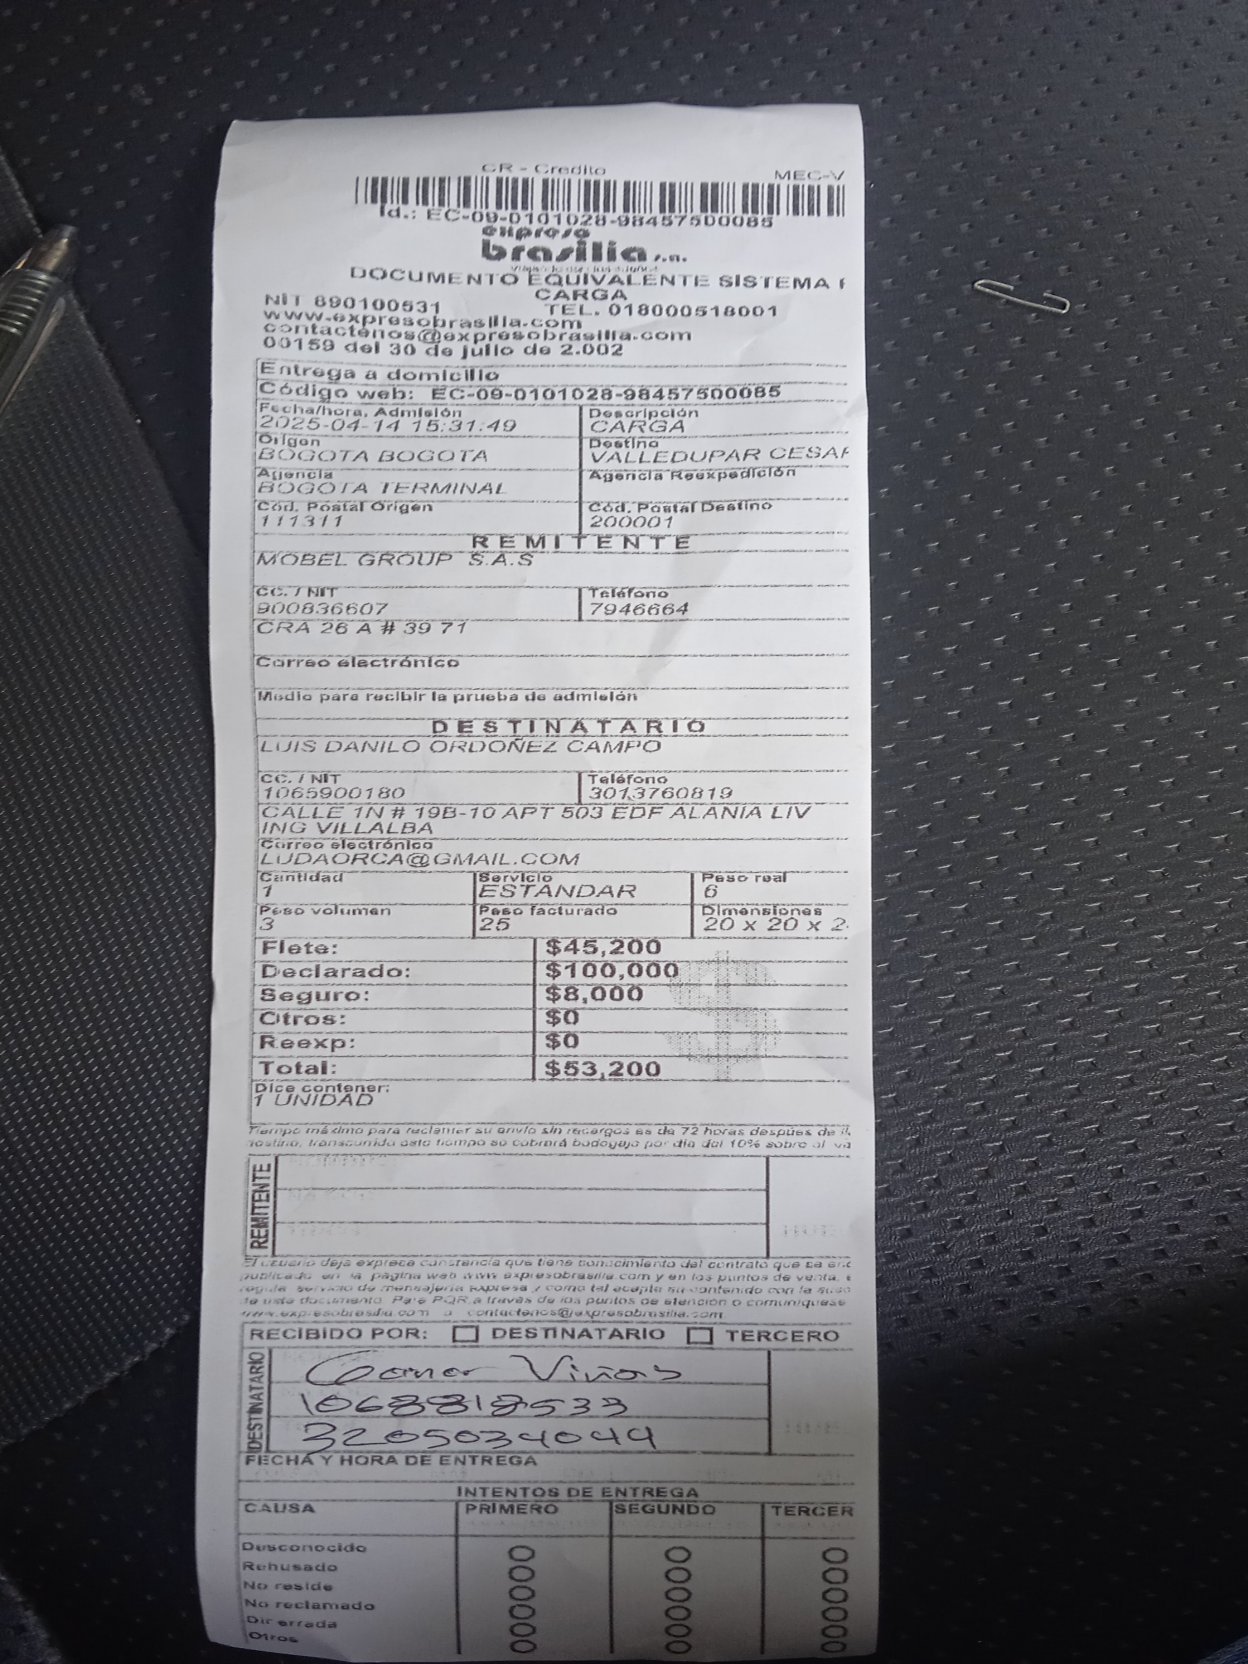 CR - Credito MEC-V
Id.: EC-09-0101028-98457500085
expreso
brasilia s.a.
DOCUMENTO EQUIVALENTE SISTEMA
CARGA
NIT 890100531 TEL. 018000518001
www.expresobrasilia.com
contactenos@expresobrasilia.com
00159 del 30 de julio de 2.002
Entrega a domicilio
Código web: EC-09-0101028-98457500085
Fecha/hora, Admisión Descripción
2025-04-14 15:31:49 CARGA
Origen Destino
BOGOTA BOGOTA VALLEDUPAR CESAR
Agencia Agencia Reexpedición
BOGOTA TERMINAL
Cód. Postal Origen Cód. Postal Destino
111311 200001
REMITENTE
MOBEL GROUP S.A.S
CC. / NIT Teléfono
900836607 7946664
CRA 26 A # 39 71
Correo electrónico
Medio para recibir la prueba de admisión
DESTINATARIO
LUIS DANILO ORDOÑEZ CAMPO
CC. / NIT Teléfono
1065900180 3013760819
CALLE 1N # 19B-10 APT 503 EDF ALANIA LIV
ING VILLALBA
Correo electrónico
LUDAORCA@GMAIL.COM
Cantidad Servicio Peso real
1 ESTANDAR 6
Peso volumen Peso facturado Dimensiones
3 25 20 x 20 x 2
Flete: $45,200
Declarado: $100,000
Seguro: $8,000
Otros: $0
Reexp: $0
Total: $53,200
Dice contener:
1 UNIDAD
Tiempo máximo para reclamar su envío sin recargos es de 72 horas después de
destino, transcurrido este tiempo se cobrará bodegaje por día del 10% sobre el va
REMITENTE
El usuario deja expresa constancia que tiene conocimiento del contrato que se enc
publicado en la página web www.expresobrasilia.com y en los puntos de venta,
regula servicio de mensajería expresa y como tal acepta su contenido con la
de este documento. Para PQR a través de los puntos de atención o comuníquese
www.expresobrasilia.com o contactenos@expresobrasilia.com
RECIBIDO POR: DESTINATARIO TERCERO
DESTINATARIO
Viñas
1068818533
3205034044
FECHA Y HORA DE ENTREGA
INTENTOS DE ENTREGA
CAUSA PRIMERO SEGUNDO TERCER
Desconocido
Rehusado
No reside
No reclamado
Dir errada
Otros